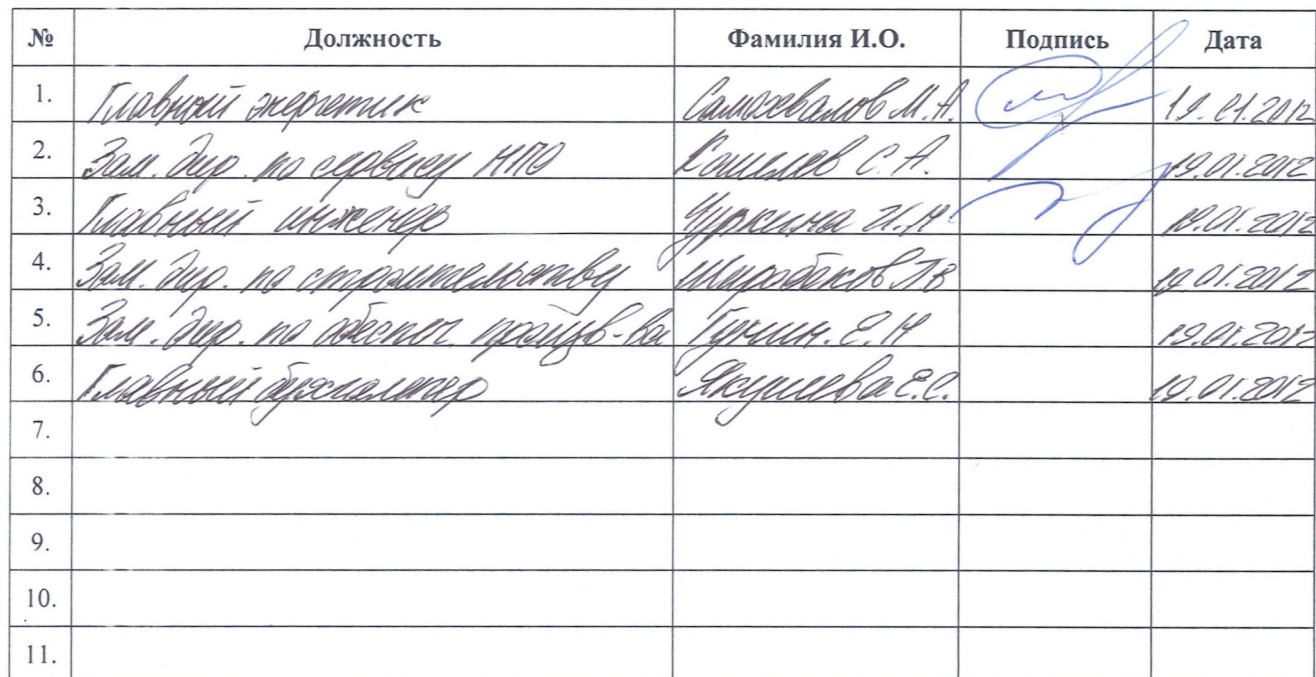 № Должность Фамилия И.О. Подпись Дата
1. Главный энергетик Самохвалов М.А. 19.01.2012
2. Зам. дир. по сервису НПО Кошелев С.А. 19.01.2012
3. Главный инженер Чуркина И.Н 19.01.2012
4. Зам. дир. по строительству 19.01.2012
5. Зам. дир. по обеспеч. произв-ва Гунин. Е.Н 19.01.2012
6. Главный бухгалтер Якушева Е.С. 19.01.2012
7.
8.
9.
10.
11.